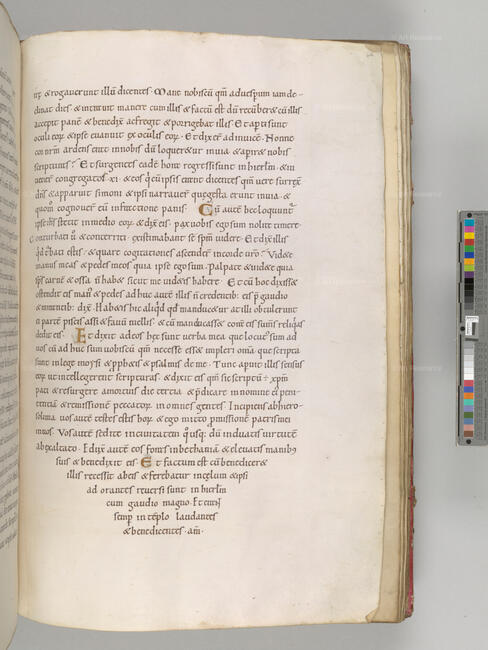 & rogaverunt illū dicentes. Mane nobiscū qm̄ advesperascit
clinat dies. & intravit manere cum illis. & factū est dū recūber& cū illis
accepit panē & benedix̄ ac fregit & porrigebat illis. Et apti sunt
oculi eoꝝ. & ipse evanuit ex oculis eoꝝ. Et dixer̄ adinvicē. Nonne
cor nr̄m ardens erat in nobis dū loquer&ur in via & aperir& nobis
scripturas? Et surgentes eadē hora regressi sunt in hierlm̄. & in
vener̄ congregatos .xi. & eos qui cū ipsis erant dicentes qm̄ vere surrex̄
dn̄s & apparuit simoni. & ipsi narraver̄ que gesta erant in via. &
quom̄ cognover̄ eum in fractione panis. Cū autē hec loquunt̄
ihs stetit in medio eoꝝ & dix̄ eis. pax vobis ego sum nolite timere.
Conturbati ū & conterriti. existimabant se spm̄ videre. Et dix̄ illis
qd turbati estis. & quare cogitationes ascender̄ in corda vr̄a? Vide&e
manus meas & pedes meos quia ipse ego sum. Palpate & vide&e quia
sps carnē & ossa n̄ hab& sicut me vid&is habere. Et cū hoc dixiss&
ostendit eis man' & pedes. ad huc autē illis n̄ credentib; eis p̄ gaudio
& mirantib; dix̄. Hab&is hic aliqd qd manduc&ur. at illi obtulerunt
ei partē piscis assi & favū mellis. & cū manducass& corā eis sumēs reliqas
dedit eis. Et dixit ad eos. hec sunt verba mea que locut' sum ad
vos cū ad huc sum vobiscū qm̄ necesse esse impleri omā. que scripta
sunt in lege moysi & pph&is & psalmis de me. Tunc apuit illis sensus
eoꝝ ut intellegerent scripturas. & dixit eis qm̄ sic scriptū ē xpm̄
pati & resurgere a mortuis die tercia. & p̄dicare in nomine ei' peni
tentiā & remissionē peccatoꝝ in omnes gentes. Incipientib; ab hiero
solima. vos autē testes estis hoꝝ. & ego mitto p̄missionē patris mei
in vos. Vos autē sed&e in civitatem qusq; dū induatis virtutē
ab exalto. Eduxit autē eos foras in bethaniā. & elevatis manib;
suis & benedixit eis. Et factum est cū benedicer&
illis recessit ab eis & ferebatur in celum & ipsi
adorantes reversi sunt in hierlm̄
cum gaudio magno. Et erant
semp̄ in tēplo laudantes
& benedicentes. am̄.